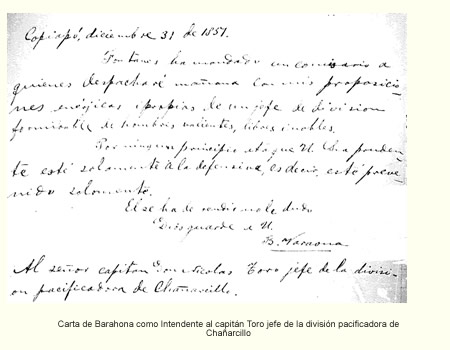 Copiapó, diciembre 31 de 1851.
Fontanes ha mandado un comisario a
quienes despacharé mañana con mis proposicio-
nes enérjicas i propias de un jefe de division
formidable de hombres valientes, libres i nobles.
Por ningun principio ataque U. Sea pruden-
te esté solamente a la defensiva, es decir, esté preve-
nido solamente.
El se ha de rendir no le dude
Dios guarde a U.
B. Varaona
Al señor capitan Don Nicolas Toro jefe de la divisi-
on pacificadora de Chañarcillo.
Carta de Barahona como Intendente al capitán Toro jefe de la división pacificadora de
Chañarcillo